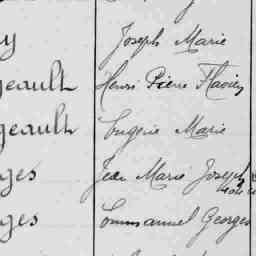 y Joseph Marie
geault Henri Pierre Flavien
geault Eugène Marie
ges Jean Marie Joseph
ges Emmanuel Georges